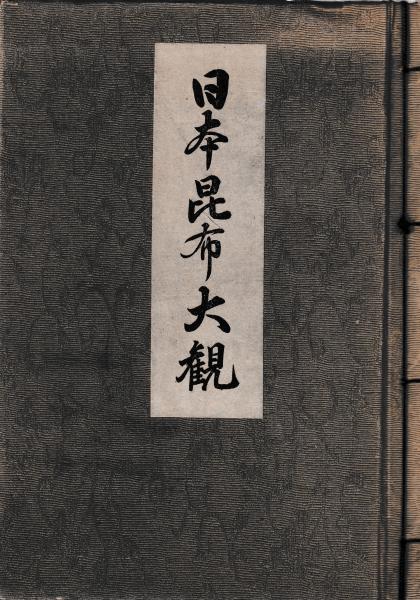 日本昆布大観